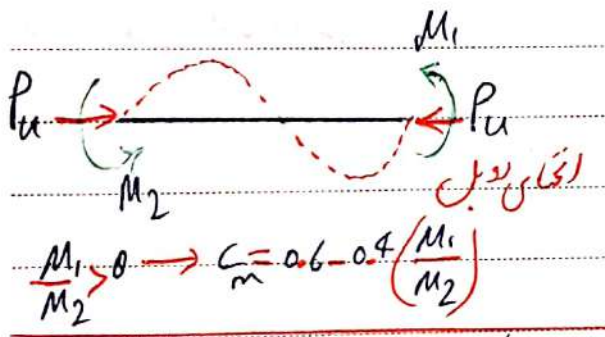 M₁
Pᵤ Pᵤ
M₂
انحنای دوبل
M₁/M₂ > 0 → Cₘ = 0.6 - 0.4 (M₁/M₂)